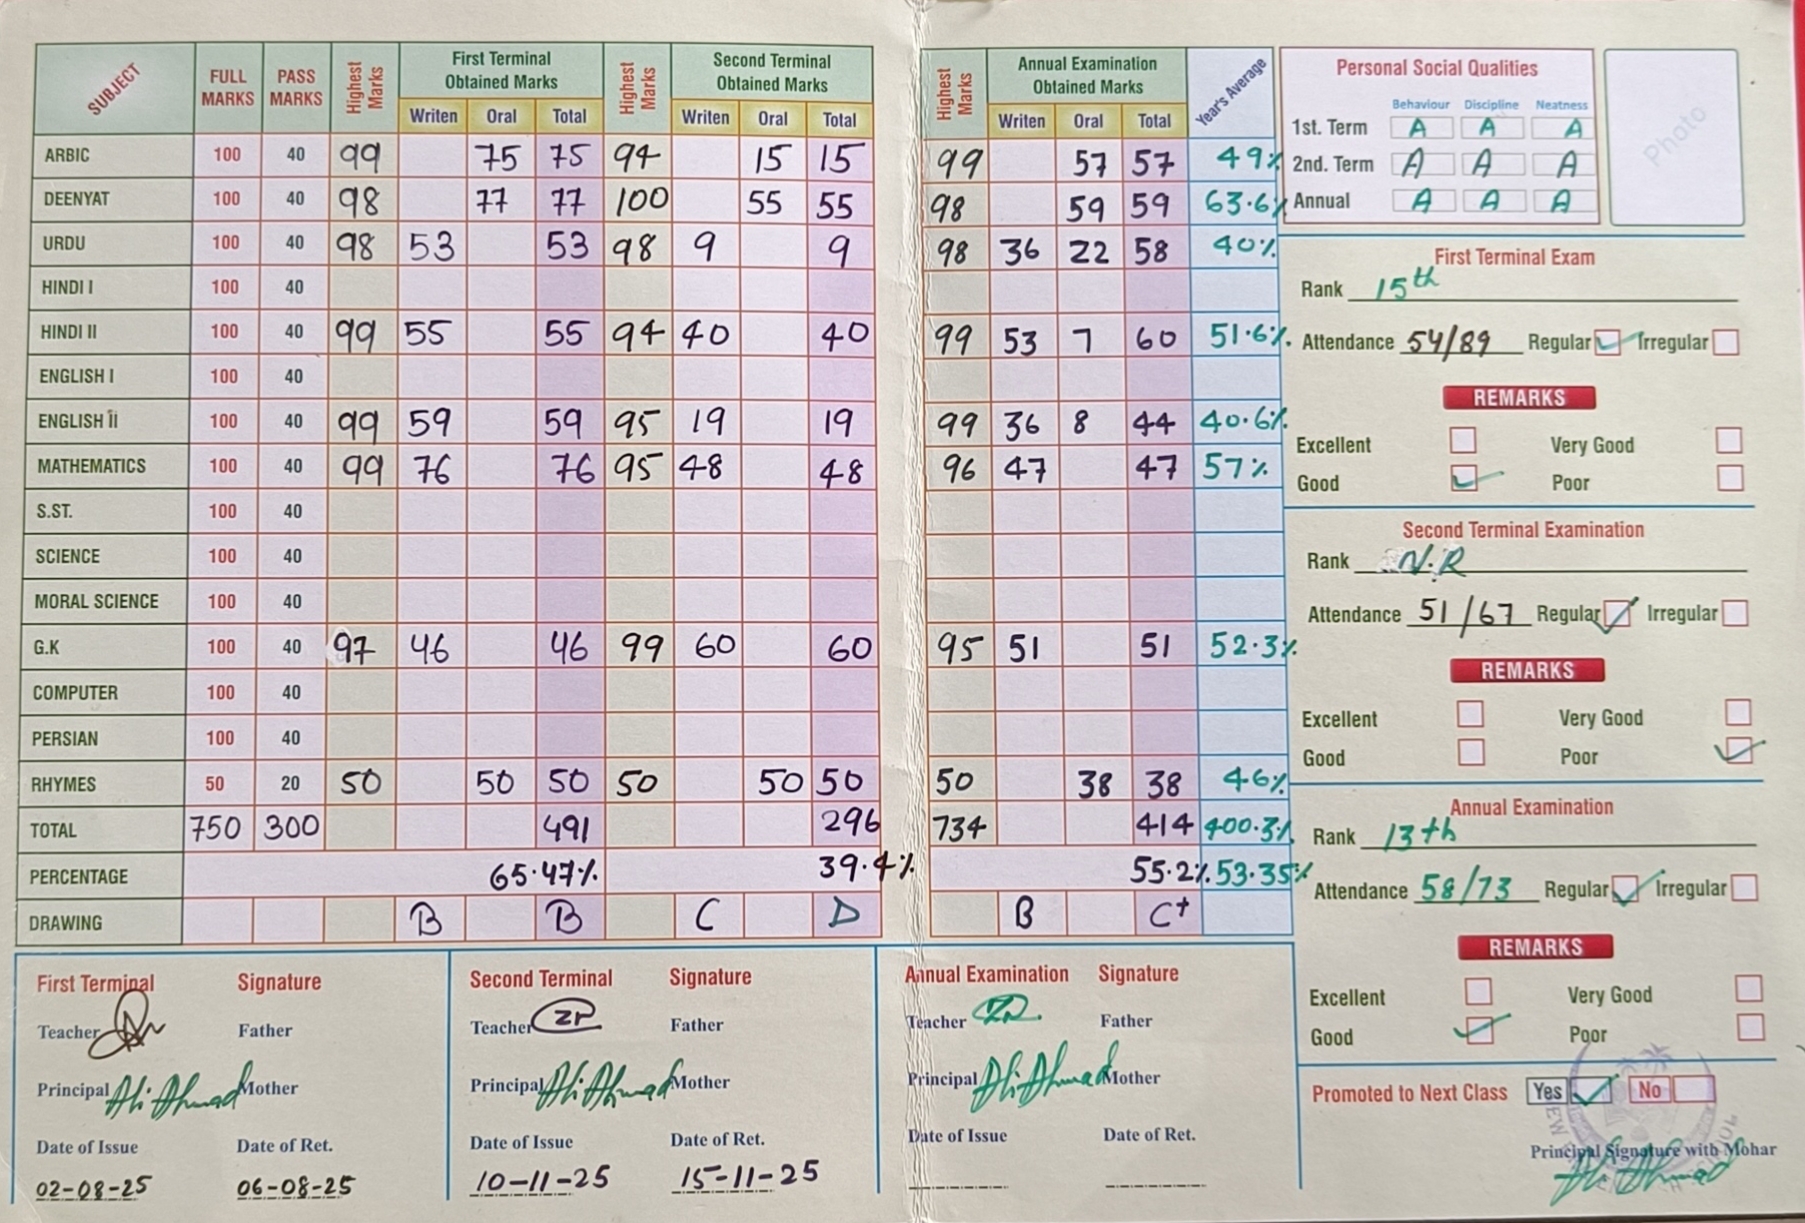 SUBJECT FULL MARKS PASS MARKS Highest Marks First Terminal Obtained Marks Highest Marks Second Terminal Obtained Marks Highest Marks Annual Examination Obtained Marks Year's Average
Writen Oral Total Writen Oral Total Writen Oral Total
ARBIC 100 40 99 75 75 94 15 15 99 57 57 49%
DEENYAT 100 40 98 77 77 100 55 55 98 59 59 63.6%
URDU 100 40 98 53 53 98 9 9 98 36 22 58 40%
HINDI I 100 40
HINDI II 100 40 99 55 55 94 40 40 99 53 7 60 51.6%.
ENGLISH I 100 40
ENGLISH II 100 40 99 59 59 95 19 19 99 36 8 44 40.6%
MATHEMATICS 100 40 99 76 76 95 48 48 96 47 47 57%
S.ST. 100 40
SCIENCE 100 40
MORAL SCIENCE 100 40
G.K 100 40 97 46 46 99 60 60 95 51 51 52.3%
COMPUTER 100 40
PERSIAN 100 40
RHYMES 50 20 50 50 50 50 50 50 50 38 38 46%
TOTAL 750 300 491 296 734 414 400.3%
PERCENTAGE 65.47% 39.4% 55.2% 53.35%
DRAWING B B C D B C+
Personal Social Qualities
Behaviour Discipline Neatness
1st. Term A A A
2nd. Term A A A
Annual A A A
Photo
First Terminal Exam
Rank 15th
Attendance 54/89 Regular Irregular
REMARKS
Excellent Very Good
Good Poor
Second Terminal Examination
Rank N.R
Attendance 51/67 Regular Irregular
REMARKS
Excellent Very Good
Good Poor
Annual Examination
Rank 13th
Attendance 58/73 Regular Irregular
REMARKS
Excellent Very Good
Good Poor
Promoted to Next Class Yes No
Principal Signature with Mohar
Ali Ahmad
First Terminal Signature
Teacher Father
Principal Ali Ahmad Mother
Date of Issue Date of Ret.
02-08-25 06-08-25
Second Terminal Signature
Teacher ZP Father
Principal Ali Ahmad Mother
Date of Issue Date of Ret.
10-11-25 15-11-25
Annual Examination Signature
Teacher Father
Principal Ali Ahmad Mother
Date of Issue Date of Ret.